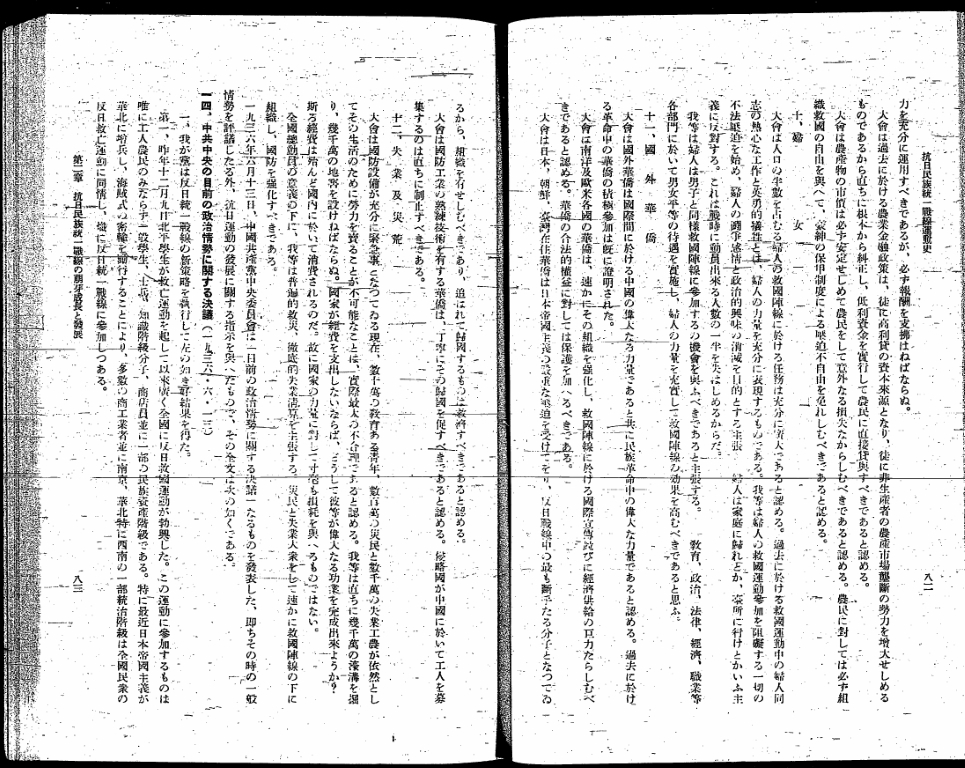 抗日民族統一戰線運動史
八二
力を充分に運用すべきであるが、必ず報酬を支拂はねばならぬ。
大會は過去に於ける農業金融政策は、徒に高利貸の資本來源となり、徒に非生産者の農産市場壟斷の勢力を增大せしめる
ものであるから直ちに根本から糾正し、低利資金を實行して農民に直接貸與すべきであると認める。
大會は農産物の市價は必ず安定せしめて農民をして意外なる損失なからしむべきであると認める。農民に對しては必ず組
織救國の自由を與へて、豪紳の保甲制度による壓迫不自由を免れしむべきであると認める。
十、婦　女
大會は人口の半數を占むる婦人の救國陣線に於ける任務は充分に重大であると認める。過去に於ける救國運動中の婦人同
志の熱心な工作と英勇的犧牲とは、婦人の力量を充分に表現するものである。我等は婦人の救國運動參加を阻礙する一切の
不法壓迫を始め、婦人の鬪爭感情と政治的興味の消滅を目的とする主張　婦人は家庭に歸れとか、臺所に行けとかいふ主
義に反對する。これは戰時に動員出來る人數の一半を失はしめるからだ。
我等は婦人は男子と同樣救國陣線に參加するの機會を與ふべきであると主張する。　教育、政治、法律、經濟、職業等
各部門に於いて男女平等の待遇を實施し、婦人の力量を充實して救國陣線の効果を高むべきであると思ふ。
十一、國外華僑
大會は國外華僑は國際間に於ける中國の偉大なる力量であると共に民族革命中の偉大な力量であると認める。過去に於け
る革命中の華僑の積極參加は既に證明された。
大會は南洋及び歐米各國の華僑は、速かにその組織を強化し、救國陣線に於ける國際宣傳並びに經濟供給の巨力たらしむべ
きであると認める。華僑の合法的權益に對しては保護を加へるべきである。
大會は日本、朝鮮、臺灣在住華僑は日本帝國主義の嚴重な壓迫を受けてをり、反日戰線中の最も斷乎たる分子となつてゐ
るから、組織を有せしむべきであり、迫はれて歸國するものは救濟すべきであると認める。
大會は國防工業の熟練技術を有する華僑は、丁寧にその歸國を促すべきであると認める。侵略國が中國に於いて工人を募
集するのは直ちに制止すべきである。
十二、失業及災荒
大會は國防設備が充分に緊急事となつてゐる現在、數十萬の教育ある靑年、數百萬の災民と數千萬の失業工農が依然とし
てその生活のために努力を賣ることが不可能なことは、實際最大の不合理であると認める。我等は直ちに幾千萬の濠溝を掘
り、幾千萬の地窖を設けねばならぬ。國家が經費を支出しないならば、どうして彼等が偉大なる功業を完成出來ようか？
斯る經費は殆んど國內に於いて消費されるのだ。故に國家の力量に對して寸毫も損耗を與へるものではない。
全國總動員の意義の下に、我等は普遍的救災、徹底的失業淸算を主張する。災民と失業大衆をして速かに救國陣線の下に
組織し、國防を強化すべきである。
一九三六年六月十三日、中國共產黨中央委員會は「目前の政治情勢に關する決議」なるものを發表した、即ちその時の一般
情勢を評議したる外、抗日運動の發展に關する指示を與へたもので、その全文は次の如くである。
一四、中共中央の目前の政治情勢に關する決議（一九三六・六・一三）
一、我が黨は反日統一戰線の新策略を執行して次の如き好結果を得た。
第一、昨年十二月九日北平學生が救亡運動を起して以來廣く全國に反日救國運動が勃興した。この運動に參加するものは
唯に工人農民のみならず一般學生、士兵、知識階級分子、商店員並に一部の民族資產階級である。特に最近日本帝國主義が
華北に增兵し、海賊式の密輸を斷行することにより、多數の商工業者並に南京、華北特に西南の一部統治階級は全國民衆の
反日救亡運動に同情し、熾に反日統一戰線に參加しつゝある。
第二章　抗日民族統一戰線の萌芽成長と發展
八三